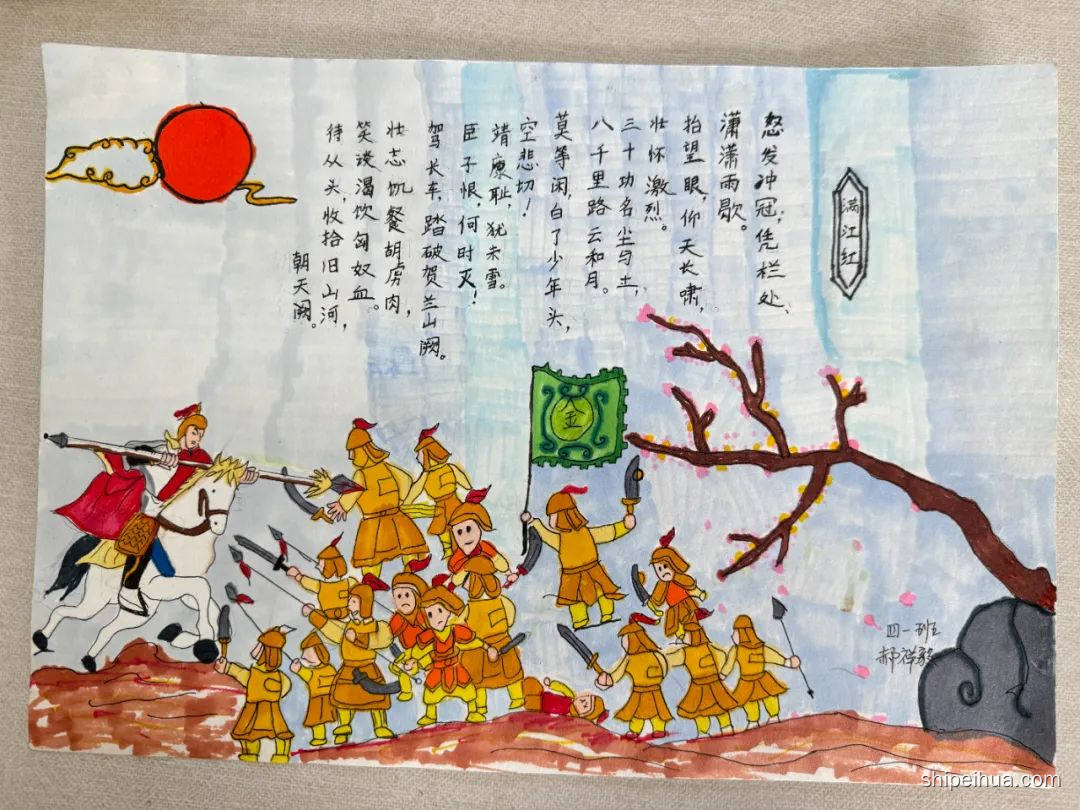 满江红
怒发冲冠,凭栏处、
潇潇雨歇。
抬望眼,仰天长啸,
壮怀激烈。
三十功名尘与土,
八千里路云和月。
莫等闲,白了少年头,
空悲切!
靖康耻,犹未雪。
臣子恨,何时灭!
驾长车,踏破贺兰山阙。
壮志饥餐胡虏肉,
笑谈渴饮匈奴血。
待从头,收拾旧山河,
朝天阙。
金
四一班
郝祥毅
shipeihua.com